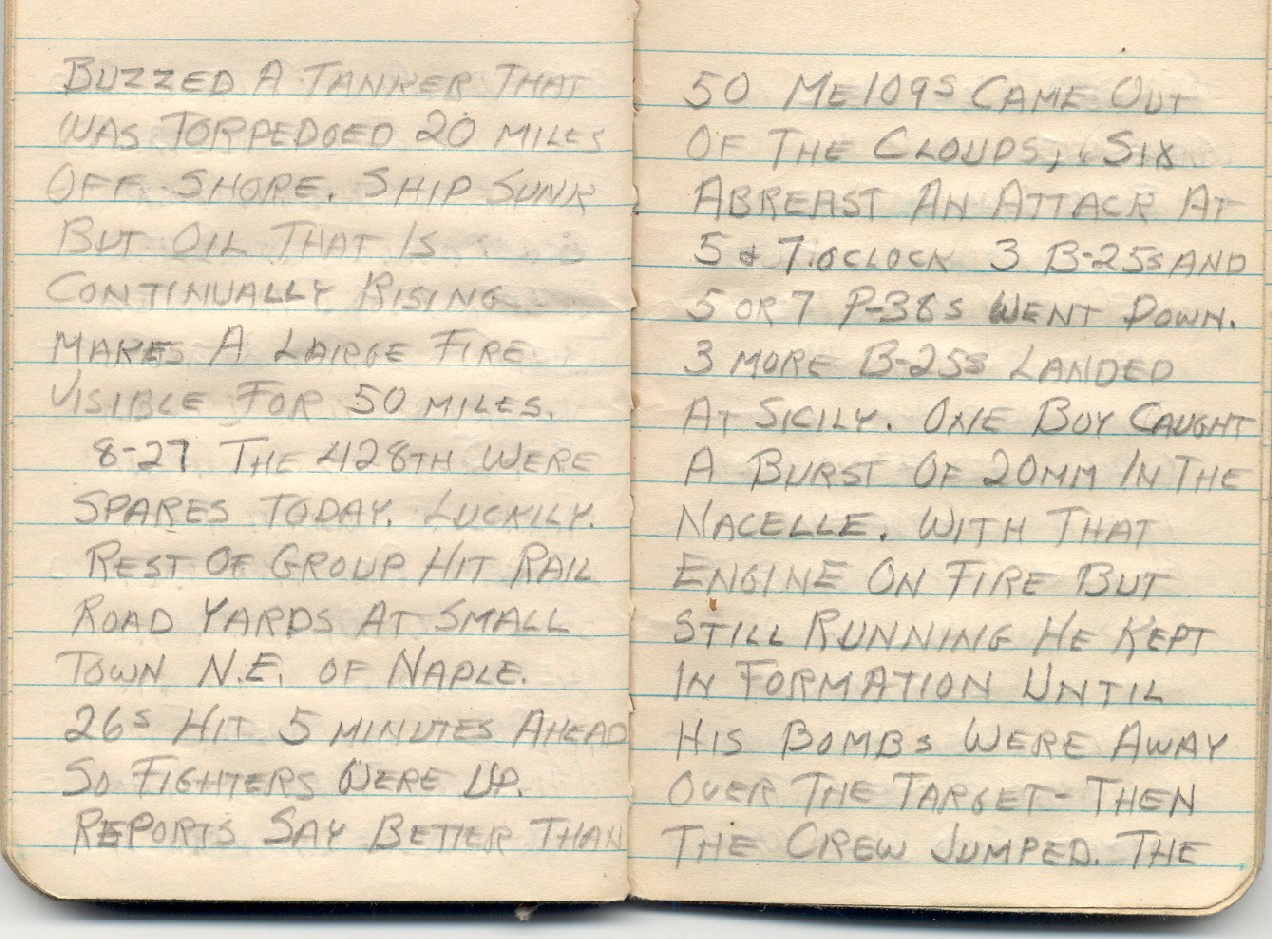 BUZZED A TANKER THAT
WAS TORPEDOED 20 MILES
OFF SHORE. SHIP SUNK
BUT OIL THAT IS
CONTINUALLY RISING
MAKES A LAIRGE FIRE
VISIBLE FOR 50 MILES.
8-27 THE 428TH WERE
SPARES TODAY. LUCKILY.
REST OF GROUP HIT RAIL
ROAD YARDS AT SMALL
TOWN N.E. OF NAPLE.
26S HIT 5 MINUTES AHEAD
SO FIGHTERS WERE UP.
REPORTS SAY BETTER THAN
50 ME109S CAME OUT
OF THE CLOUDS, SIX
ABREAST AN ATTACK AT
5 & 7 OCLOCK 3 B-25S AND
5 OR 7 P-38S WENT DOWN.
3 MORE B-25S LANDED
AT SICILY. ONE BOY CAUGHT
A BURST OF 20MM IN THE
NACELLE. WITH THAT
ENGINE ON FIRE BUT
STILL RUNNING HE KEPT
IN FORMATION UNTIL
HIS BOMBS WERE AWAY
OVER THE TARGET- THEN
THE CREW JUMPED. THE